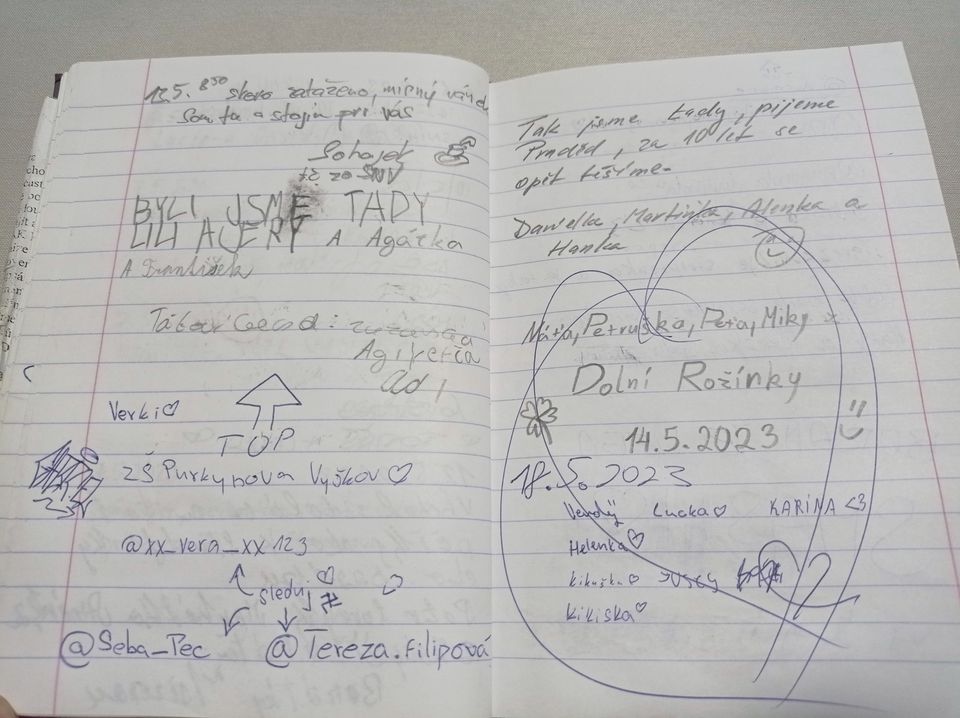 13.5. 8³⁰ skoro zataženo, mírný
Som tu a stojím pri vás
Sohajek
BYLI JSME TADY
LILI A JERY A Agátka
A František
Agi Peťa
Adi
Verki♡
TOP
ZŠ Purkynova Vyškov ♡
@xx_vera_xx 123
sleduj ♡
@Seba_Pec @Tereza.filipová
Tak jsme tady, pijeme
Praděd, za 10 let se
opět těšíme
Danielka, Martinka, Alenka a
Hanka
Máťa, Petruška, Peťa, Miky
Dolní Rožínky
14.5.2023
18.5.2023
Lucka♡ KARINA <3
Helenka♡
Kikuška♡
Kikiska♡